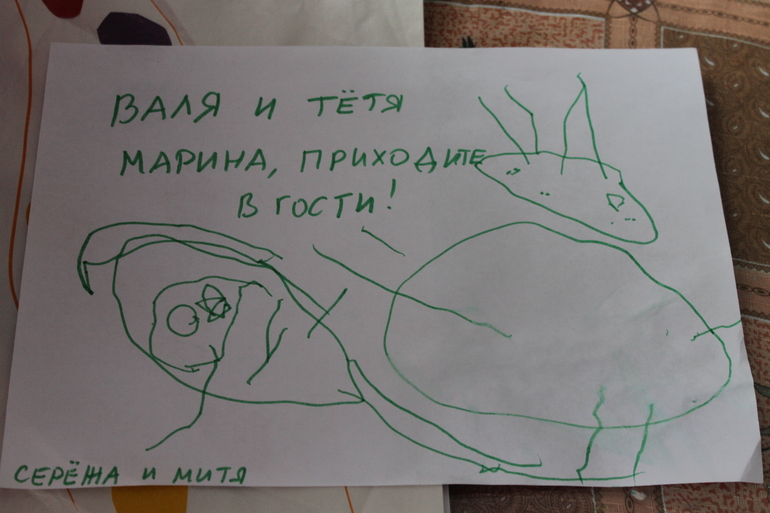 ВАЛЯ И ТЁТЯ
МАРИНА, ПРИХОДИТЕ
В ГОСТИ!
СЕРЁЖА И МИТЯ